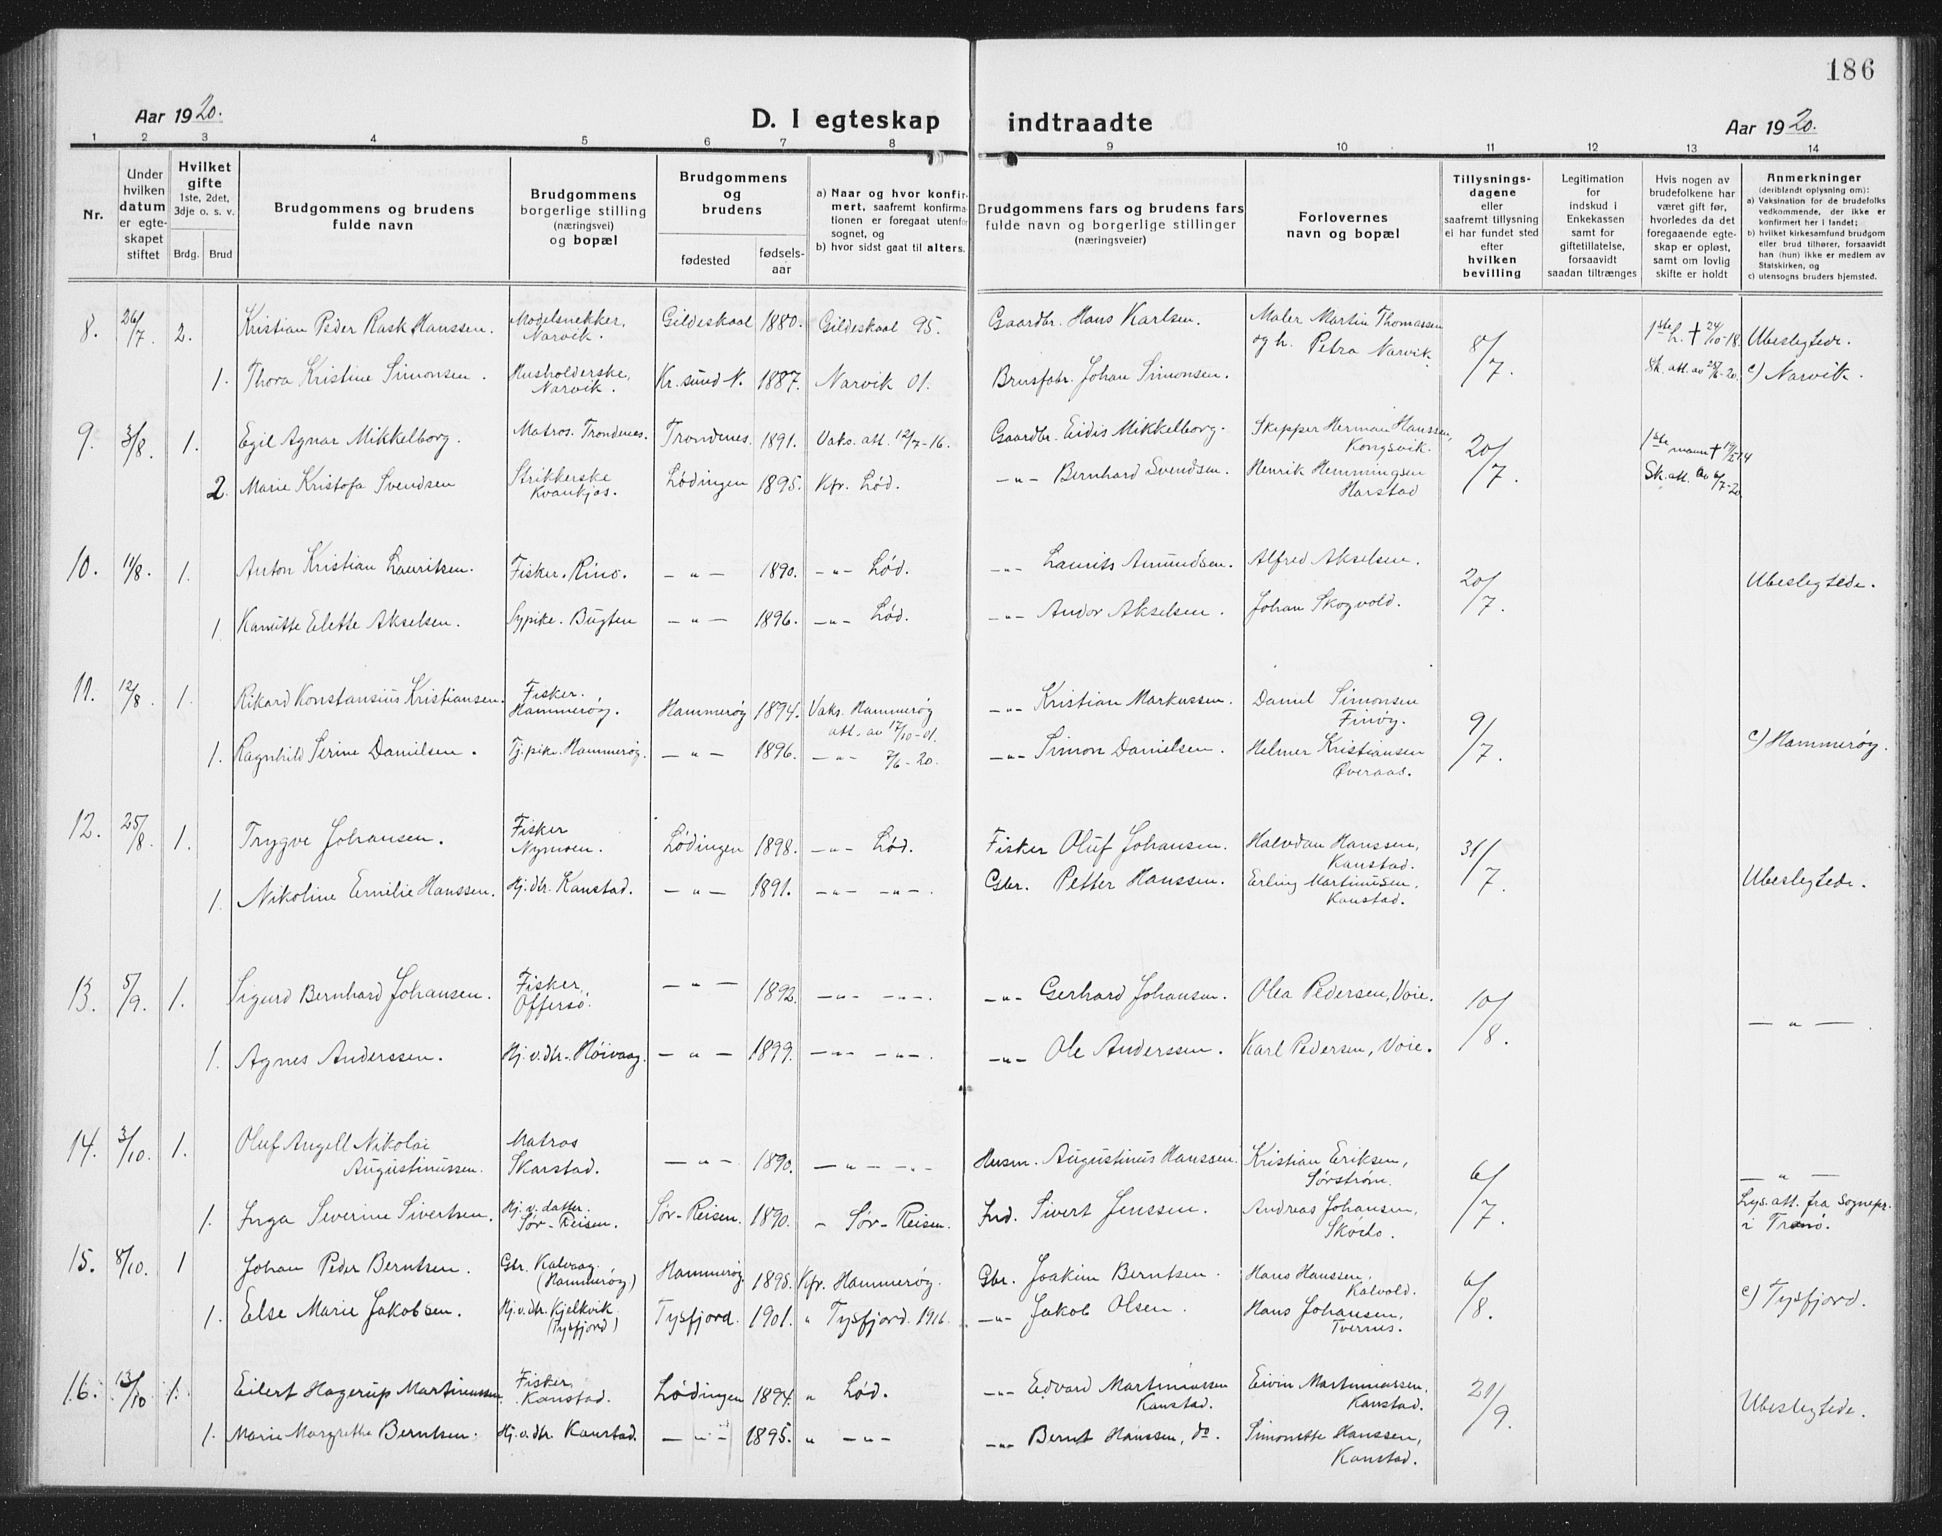 186
Aar 1920. D. I egteskap indtraadte Aar 1920.
1 2 3 4 5 6 7 8 9 10 11 12 13 14
Nr.
Under hvilken datum er egteskapet stiftet
Hvilket gifte 1ste, 2det, 3dje o. s. v.
Brdg. Brud
Brudgommens og brudens fulde navn
Brudgommens borgerlige stilling (næringsvei) og bopæl
Brudgommens og brudens
fødested fødselsaar
a) Naar og hvor konfirmert, saafremt konfirmationen er foregaat utenfor sognet, og
b) hvor sidst gaat til alters.
Brudgommens fars og brudens fars fulde navn og borgerlige stillinger (næringsveier)
Forlovernes navn og bopæl
Tillysningsdagene eller saafremt tillysning ei har fundet sted efter hvilken bevilling
Legitimation for indskud i Enkekassen samt for giftetillatelse, forsaavidt saadan tiltrænges
Hvis nogen av brudefolkene har været gift før, hvorledes da det foregaaende egteskap er opløst, samt om lovlig skifte er holdt
Anmerkninger (deriblandt oplysning om):
a) Vaksination for de brudefolks vedkommende, der ikke er konfirmert her i landet;
b) hvilket kirkesamfund brudgom eller brud tilhører, forsaavidt han (hun) ikke er medlem av Statskirken, og
c) utensogns bruders hjemsted.
8. 26/7 2. Kristian Peder Rask Hanssen. Modelsnekker, Narvik. Gildeskaal 1880. Gildeskaal 95. Gaardbr. Hans Karlsen. Maler Martin Thomassen og h. Petra Narvik. 8/7 1ste h. † 24/10-18. Ubeslegtede.
1. Thora Kristine Simonsen. Husholderske, Narvik. Kr.sund N. 1887. Narvik 01. Brusfabr. Johan Simonsen. Sk. att. av 28/6-20. c) Narvik.
9. 3/8. 1. Egil Agnar Mikkelborg. Matros. Trondenes. Trondenes. 1891. Vaks. att. 12/7-16. Gaardbr. Eidis Mikkelborg. Skipper Herman Hanssen, Kongsvik. 20/7. 1ste mann †
2. Marie Kristofa Svendsen Strikkerske Kvankjos. Lødingen 1895. Kfr. Lød. -"- Bernhard Svendsen. Henrik Hemmingsen Harstad Sk. att. av 6/7-20.
10. 11/8. 1. Anton Kristian Lauritsen. Fisker. Rinø. - " - 1890. -"- Lød. -"- Laurits Amundsen. Alfred Akselsen. 20/7. Ubeslegtede.
1. Kanutte Elette Akselsen. Sypike. Bugten - " - 1896. -"- Lød. -"- Andor Akselsen. Johan Skogvold.
11. 12/8. 1. Rikard Konstansius Kristiansen. Fisker. Hammerøy. Hammerøy 1894. Vaks. Hammerøy att. av 17/10-01. -"- Kristian Markussen. Daniel Simonsen Finøy. 9/7. c) Hammerøy.
1. Ragnhild Serine Danielsen. Tj.pike. Hammerøy. - " - 1896. - " - 7/6-20. -"- Simon Danielsen. Helmer Kristiansen Øveraas.
12. 25/8. 1. Trygve Johansen. Fisker Nymoen. Lødingen 1898. -"- Lød. Fisker Oluf Johansen. Halvdan Hanssen, Kanstad. 31/7. Ubeslegtede.
1. Nikoline Emilie Hanssen. Hj. dtr. Kanstad. - " - 1891. -"- -"-. Gbr. Petter Hanssen. Erling Martinusen, Kanstad.
13. 5/9. 1. Sigurd Bernhard Johansen. Fisker, Offersø. - " - 1892. -"- -"-. -"- Gerhard Johansen. Olea Pedersen, Voie. 10/8. - " -
1. Agnes Anderssen. Hj.v.dtr. Høivaag. - " - 1899. -"- -"-. -"- Ole Anderssen. Karl Pedersen, Voie.
14. 3/10. 1. Oluf Angell Nikolai Augustinussen. Matros Skarstad. - " - 1890. -"- -"- Husm. Augustinus Hanssen. Kristian Eriksen, Sørstrøm. 6/7. - " -
1. Inga Severine Sivertsen. Hj. v. datter. Sør-Reisen. Sør-Reisen. 1890. " Sør-Reisen. Ind. Sivert Jenssen. Andreas Johansen, Lys. att. fra Sognepr. i Tranø.
15. 8/10. 1 Johan Peder Berntsen. Gbr. Kalvaag. (Hammerøy) Hammerøy 1898. Kfr. Hammerøy. Gbr. Joakim Berntsen. Hans Hanssen, Kalvold. 6/8. c) Tysfjord.
1. Else Marie Jakobsen. Hj.v.dtr. Kjelkvik (Tysfjord) Tysfjord. 1901. " Tysfjord. 1916. -"- Jakob Olsen. Hans Johansen, Tvernes.
16. 13/10 1. Eilert Hagerup Martinussen. Fisker, Kanstad. Lødingen 1894. " Lød. -"- Edvard Martiniussen Kanstad. Eivin Martiniussen, Kanstad. 21/9. Ubeslegtede.
1. Marie Margrethe Berntsen. Hj.v.dtr. Kanstad. - " - 1895. " -"- -"- Bernt Hanssen, do. Simonette Hanssen, Kanstad.